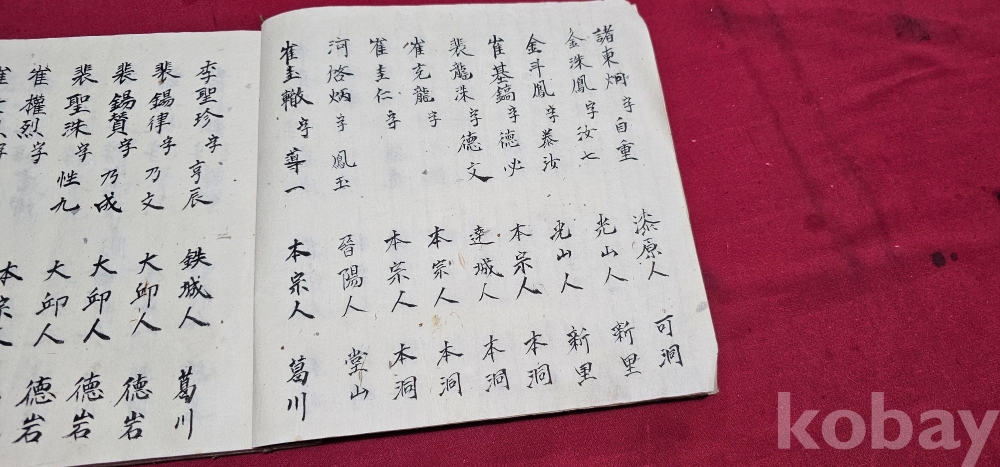 諸東炯字自重 漆原人 可洞
金洙鳳字汝七 光山人 新里
金斗鳳字泰汝 光山人 新里
崔基鎬字德必 本宗人 本洞
裴龍洙字德文 達城人 本洞
崔克龍字 本宗人 本洞
崔圭仁字 本宗人 本洞
河啓炳字鳳玉 晉陽人 堂山
崔圭轍字尊一 本宗人 葛川
李聖珍字亨辰 鉄城人 葛川
裴錫律字乃文 大邱人 德岩
裴錫賛字乃成 大邱人 德岩
裴聖洙字性九 大邱人 德岩
崔權烈字
本宗人
kobay